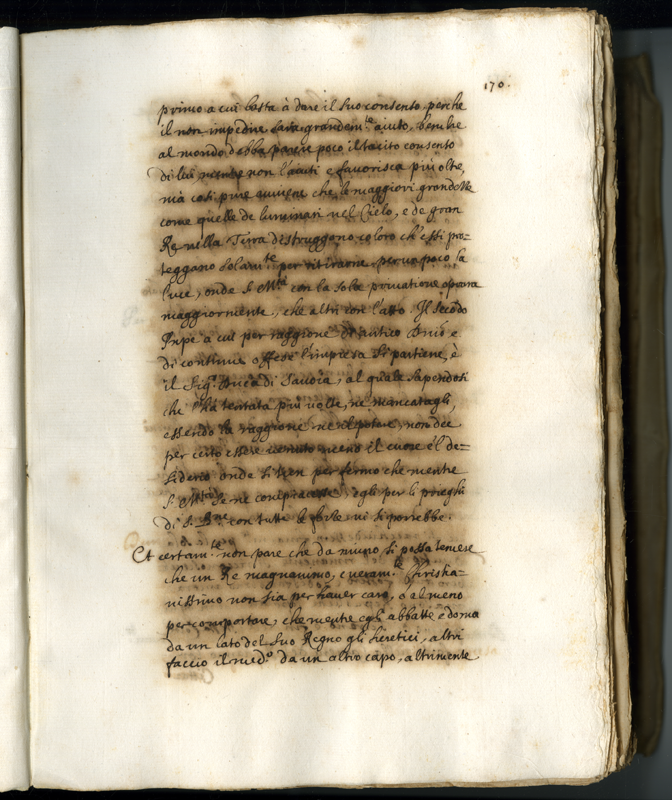 170.
primo a cui basta à dare il suo consento perche
il non impedire sarà grandem.te aiuto, benche
al mondo debba parere poco il tacito consento
di lui, mentre non l'aiuti e favorisca più oltre,
mà così pure avviene che le maggiori grandezze
come quelle de luminari nel Cielo, e de gran
Re nella Terra distruggono coloro ch'essi pro=
teggano solam.te per ritirarne per un poco la
luce, onde S. M.tà con la sola privatione opera
maggiormente, che altri con l'atto. Il secodo
Prpe a cui per raggione di antico Dnio e
di continue offese l'impresa si partiene, è
il Sig.r Duca di Savoia, al quale sapendosi
che l'ha tentata più volte, ne mancatagli,
essendo la raggione ne il potere, non dee
per certo essere venuto meno il cuore e'l de=
siderio onde si tien per fermo che mentre
S. M.tà se ne compiacesse, egli per li prieghi
di S. B.ne con tutte le forze vi si porrebbe.
Et certam.te non pare che da niuno si possa temere
che un Re magnanimo, e veram.te Christia=
nissimo non sia per haver caro, o almeno
per comportare, che mentre egli abbatte e doma
da un lato del suo Regno gli heretici, altri
faccia il med.o da un altro capo, altrimente